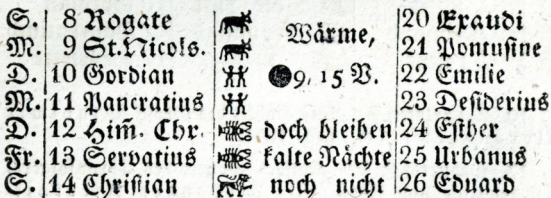 S. 8 Rogate 20 Exaudi
M. 9 St. Nicols. Wärme, 21 Pontusine
D. 10 Gordian 9, 15 V. 22 Emilie
M. 11 Pancratius 23 Desiderius
D. 12 Him̃. Chr. doch bleiben 24 Esther
Fr. 13 Servatius kalte Nächte 25 Urbanus
S. 14 Christian noch nicht 26 Eduard